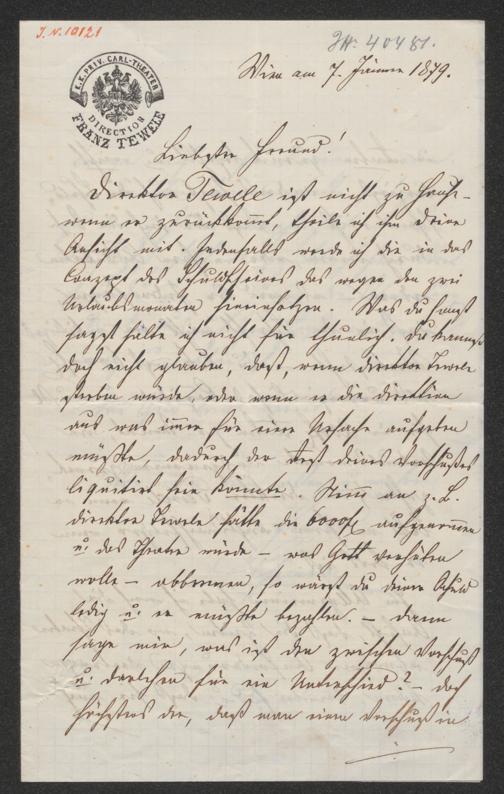 J.N. 10121
JH: 40481.
K.K. PRIV. CARL-THEATER
DIRECTION
FRANZ TEWELE
Wien am 7. Jänner 1879.
Liebster Freund!
Direktor Tewele ist nicht zu Hause –
wenn er zurückkommt, theile ich ihm Deine
Ansicht mit. Jedenfalls werde ich Dir in das
Conzept des Schuldscheines das wegen den zwei
Urlaubsmonaten hineinsetzen. Was Du sonst
sagst halte ich nicht für thunlich. Du kannst
doch nicht glauben, daß, wenn Direktor Tewele
sterben würde, oder wenn er die Direktion
aus was immer für eine Ursache aufgeben
müßte, dadurch der Rest deines Vorschußes
liquitirt sein könnte. Nimm an z. B.
Direktor Tewele hätte die 6000 f aufgenommen
u. das Theater würde – was Gott verhüten
wolle – abbrennen, so wärst du deiner Schuld
ledig u. er müßte bezahlen. – Dann
sage mir, was ist den zwischen Vorschuß
u. Darlehen für ein Unterschied? – Doch
höchstens der, daß man einen Vorschuß in